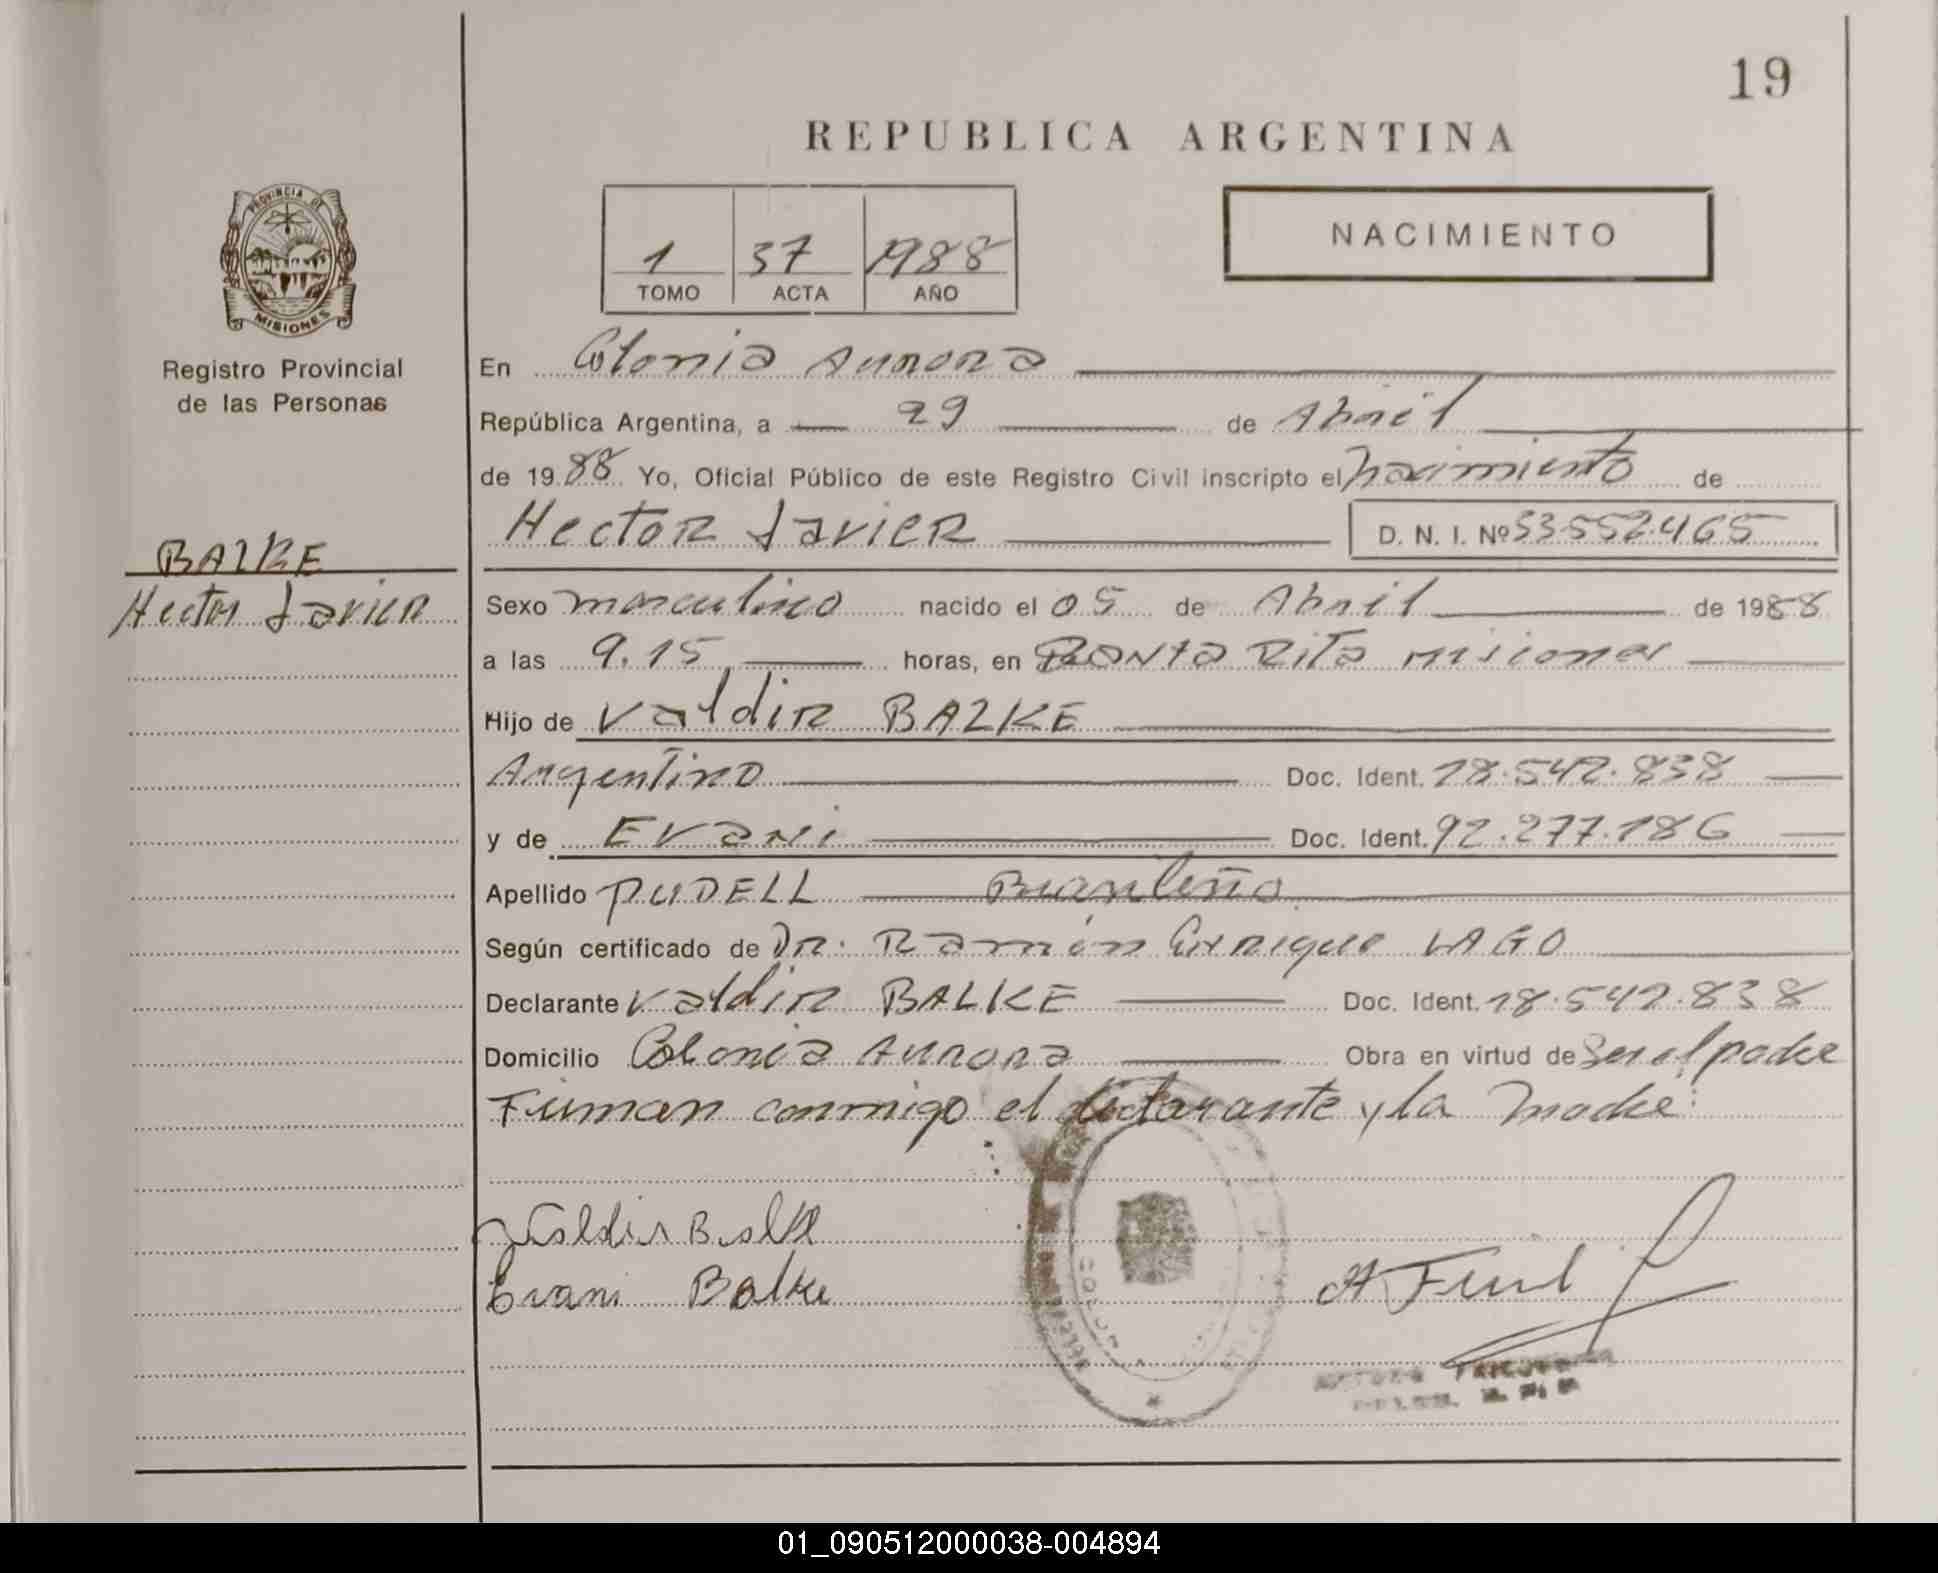 19
REPUBLICA ARGENTINA
PROVINCIA DE
MISIONES
Registro Provincial
de las Personas
1 37 1988
TOMO ACTA AÑO
NACIMIENTO
En Colonia Aurora
República Argentina, a 29 de Abril
de 1988 Yo, Oficial Público de este Registro Civil inscripto el nacimiento de
Hector Javier D. N. I. Nº 33.552.465
BALKE
Hector Javier
Sexo masculino nacido el 05 de Abril de 1988
a las 9.15 horas, en Santa Rita Misiones
Hijo de Valdir BALKE
Argentino Doc. Ident. 18.542.838
y de Evani Doc. Ident. 92.277.186
Apellido PUDELL Brasileña
Según certificado de Dr. Ramón Enrique LAGO
Declarante Valdir BALKE Doc. Ident. 18.542.838
Domicilio Colonia Aurora Obra en virtud de Ser el padre
Firman conmigo el declarante y la madre.
Valdir Balke
Evani Balke
01_090512000038-004894